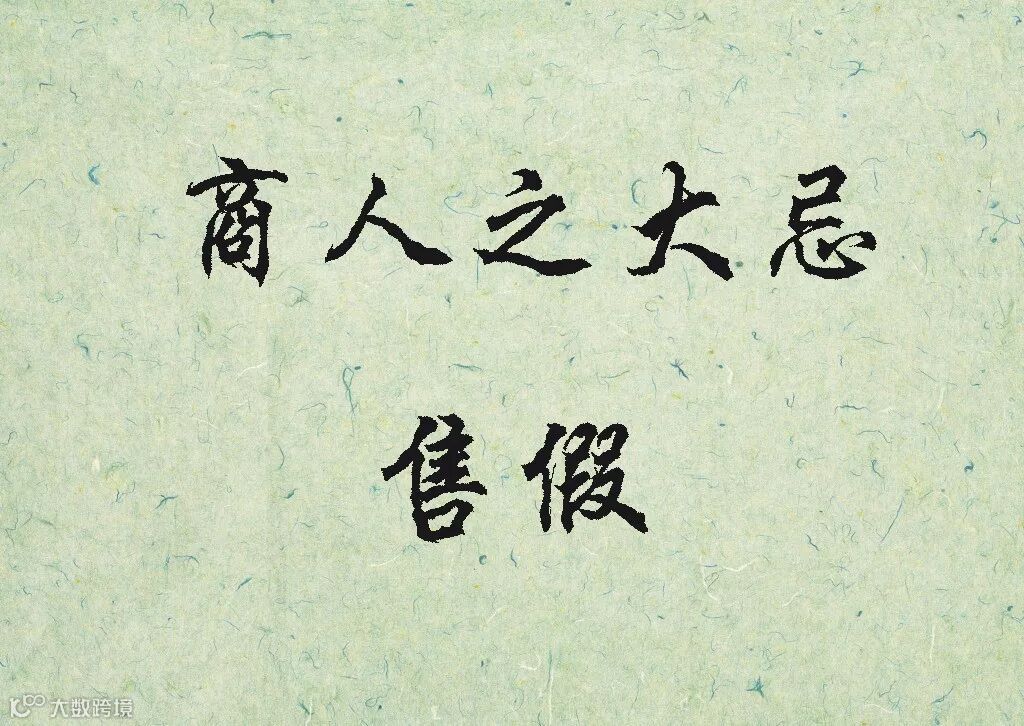 商人之大忌
售假
大数跨境